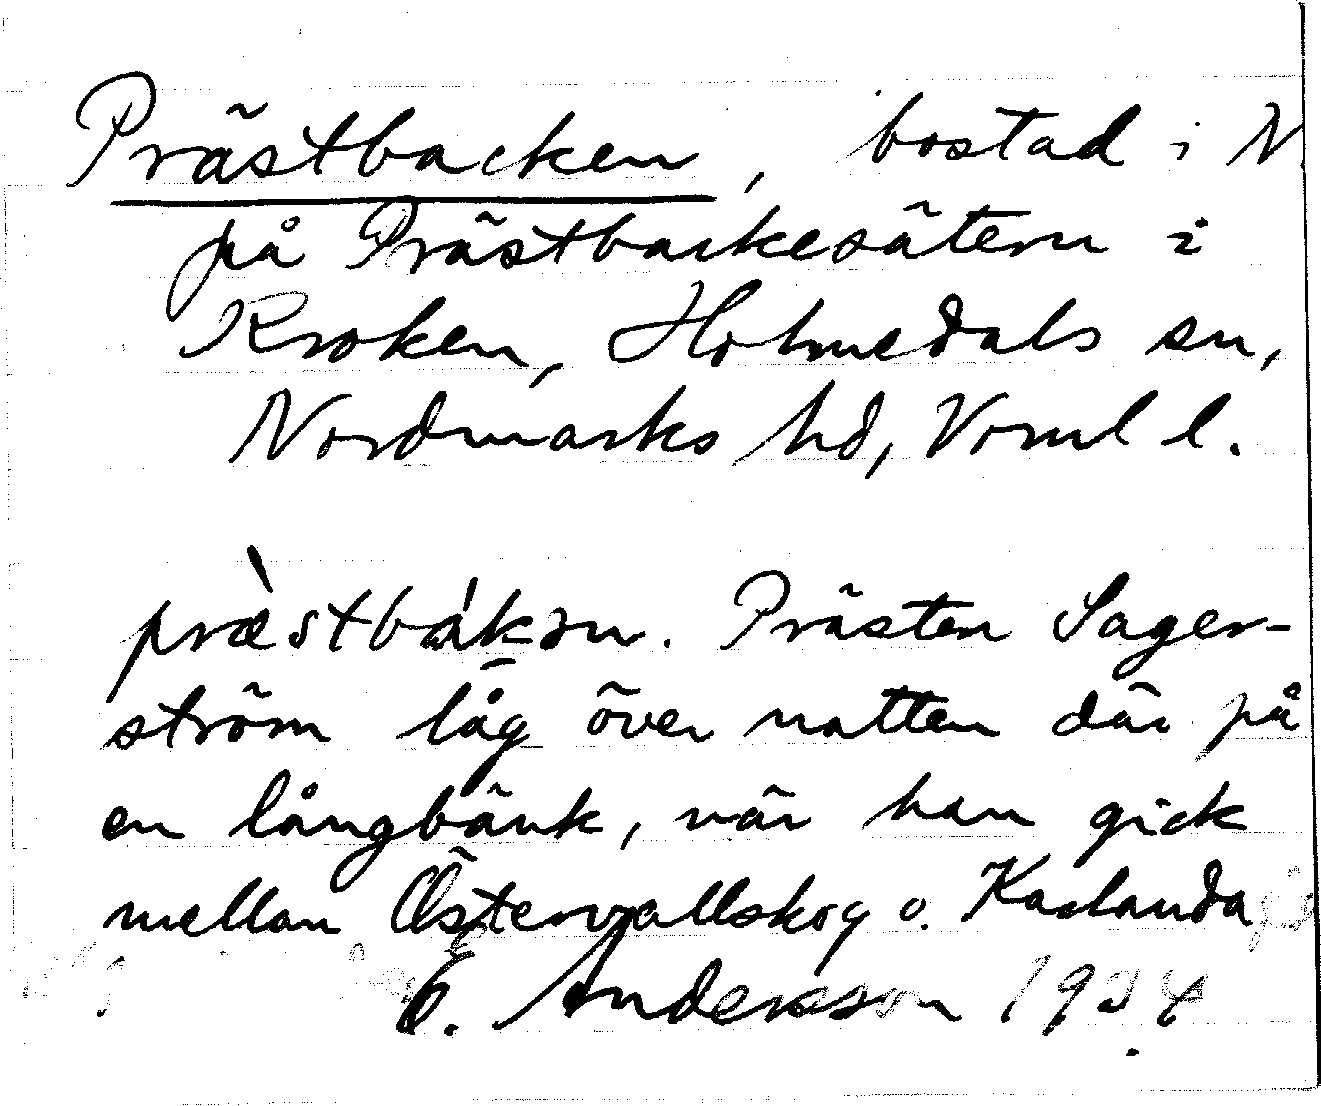 Prästbacken, bostad i N.
på Prästbackesätern i
Kroken, Holmedals sn,
Nordmarks hd, Vrml l.
præ̀stbákən. Prästen Lager-
ström låg över natten där på
en långbänk, när han gick
mellan Östervallskog o. Karlanda
E. Andersson 1934